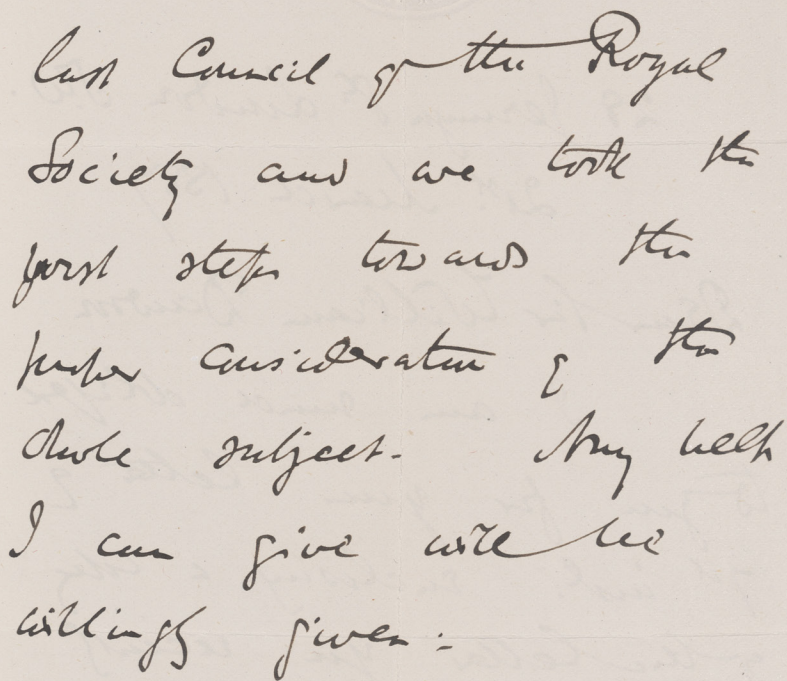 last Council of the Royal
Society and we took the
first steps towards the
proper consideration of the
whole subject. Any help
I can give will be
willingly given.